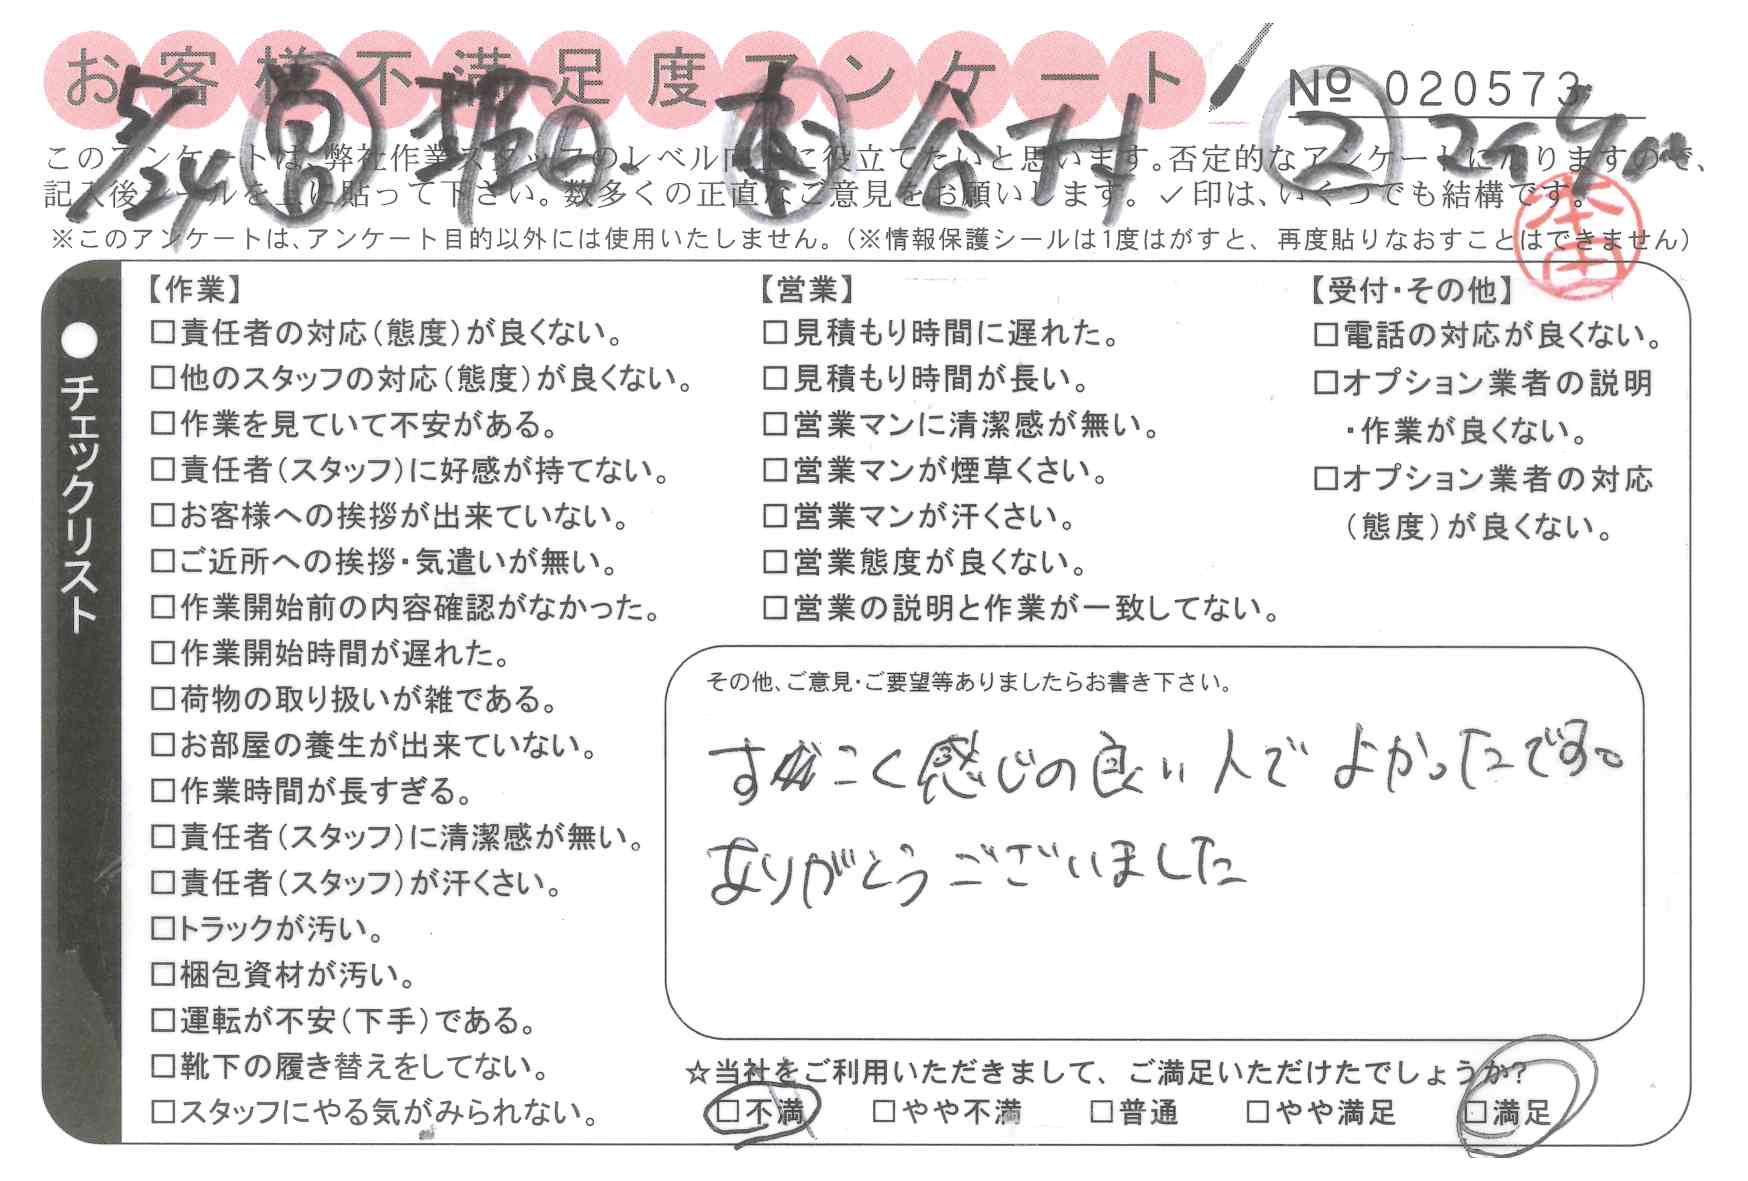 お客様不満足度アンケート
№ 020573
5/24
このアンケートは、弊社作業スタッフのレベル向上に役立てたいと思います。否定的なアンケートになりますので、
記入後シールを上に貼って下さい。数多くの正直なご意見をお願いします。✓印は、いくつでも結構です。
※このアンケートは、アンケート目的以外には使用いたしません。（※情報保護シールは1度はがすと、再度貼りなおすことはできません）
本田
●チェックリスト
【作業】
□責任者の対応（態度）が良くない。
□他のスタッフの対応（態度）が良くない。
□作業を見ていて不安がある。
□責任者（スタッフ）に好感が持てない。
□お客様への挨拶が出来ていない。
□ご近所への挨拶・気遣いが無い。
□作業開始前の内容確認がなかった。
□作業開始時間が遅れた。
□荷物の取り扱いが雑である。
□お部屋の養生が出来ていない。
□作業時間が長すぎる。
□責任者（スタッフ）に清潔感が無い。
□責任者（スタッフ）が汗くさい。
□トラックが汚い。
□梱包資材が汚い。
□運転が不安（下手）である。
□靴下の履き替えをしてない。
□スタッフにやる気がみられない。
【営業】
□見積もり時間に遅れた。
□見積もり時間が長い。
□営業マンに清潔感が無い。
□営業マンが煙草くさい。
□営業マンが汗くさい。
□営業態度が良くない。
□営業の説明と作業が一致してない。
【受付・その他】
□電話の対応が良くない。
□オプション業者の説明
・作業が良くない。
□オプション業者の対応
（態度）が良くない。
その他、ご意見・ご要望等ありましたらお書き下さい。
すごく感じの良い人でよかったです。
ありがとうございました
☆当社をご利用いただきまして、ご満足いただけたでしょうか?
□不満 □やや不満 □普通 □やや満足 □満足